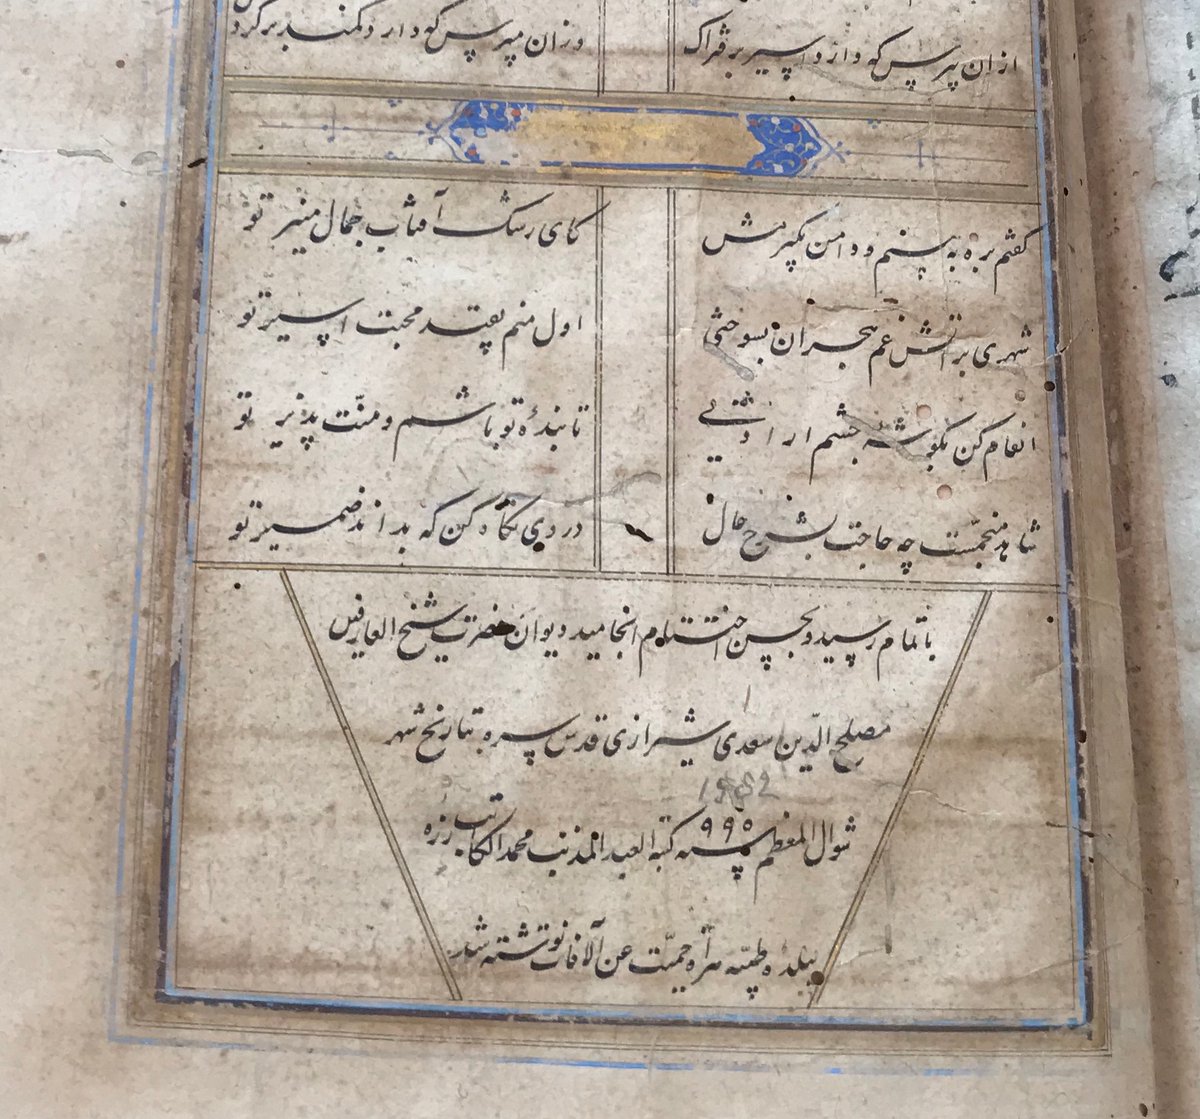 ازان بپرس که دارد اسیر بر فتراک وزان مپرس که دارد کمند بر
گفتم بره به بینم و دامن بگیرمش کای رشک آفتاب جمال منیر تو
شهری بر آتش غم هجران بسوختی اول منم بقید محبت اسیر تو
انعام کن بگوشهٔ چشم ارادتی تا بندهٔ تو باشم و منّت پذیر تو
شاهد منجمست چه حاجت بشرح حال در وی نگاه کن که بداند ضمیر تو
باتمام رسید و بحسن اختتام انجامید دیوان حضرت شیخ العارفین
مصلح الدّین سعدی شیرازی قدس سره بتاریخ شهر
شوال المعظم سنه ۹۹۰ کتبه العبد المذنب محمد الکاتب رزه
ببلدهٔ طیبه هراة حمیّت عن الآفات نوشته شد